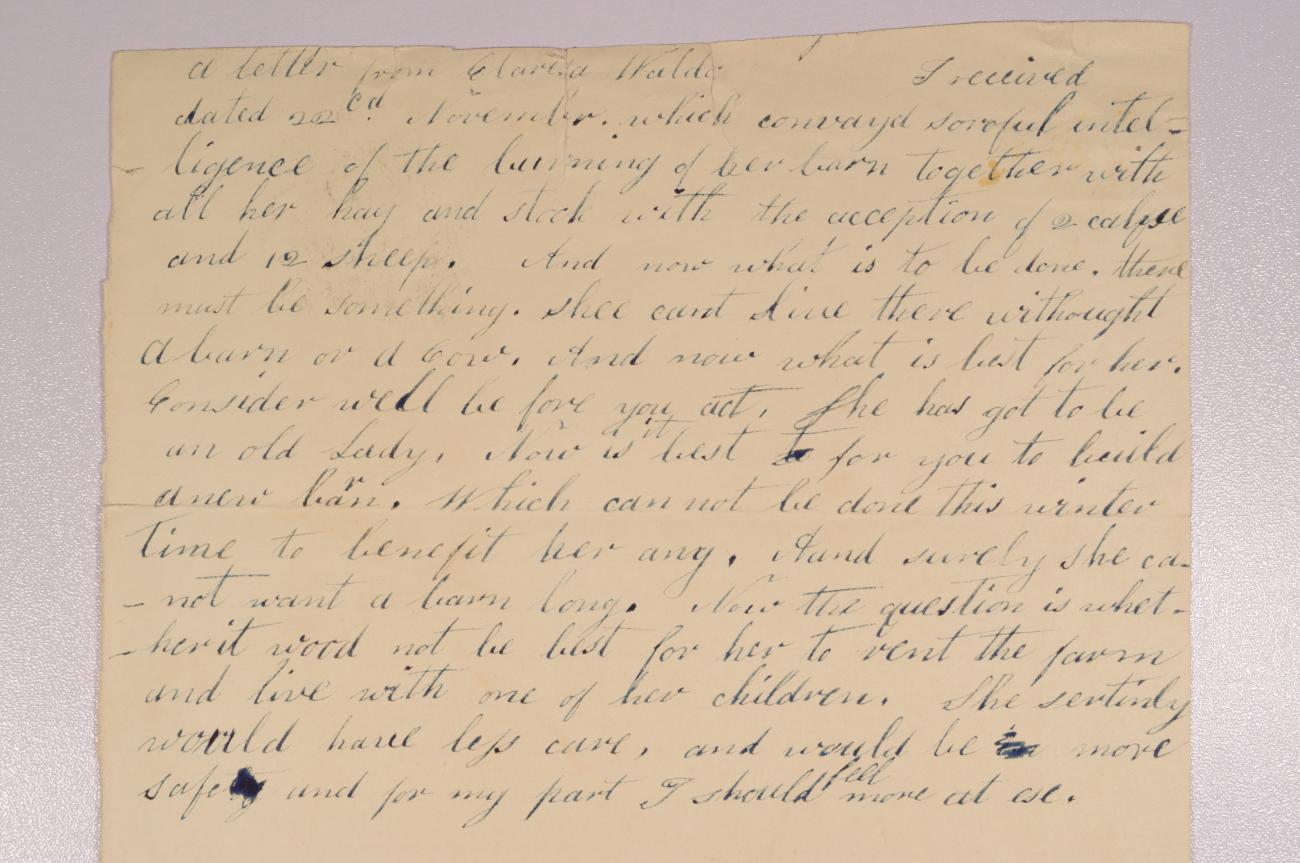 a letter from Clarisa Waldo I received
dated 22cd. November. which convayd soroful intel-
-ligence of the burning of her barn together with
all her hay and stock with the acception of 2 calfse
and 12 sheep. And now what is to be done. there
must be something. shee cant live there withought
a barn or a Cow. And now what is best for her.
Consider well be fore you act. She has got to be
an old Lady, Now is it best for you to build
a new barn. Which can not be done this winter
time to benefit her any. Aand surely she ca-
-not want a barn long. Now the question is whet-
-her it wood not be best for her to rent the farm
and live with one of her children. She sertinly
would have less care, and would be more
safe and for my part I should feel more at ese.